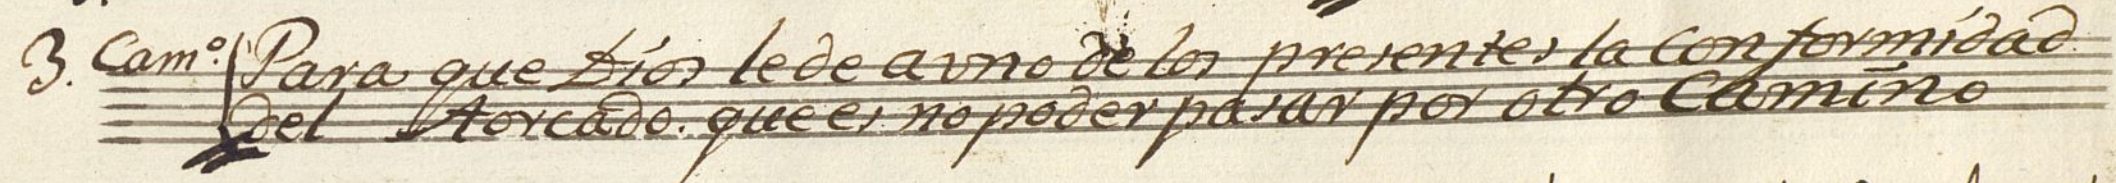 3. Camº. Para que Dios le de a vno de los presentes la Conformidad
del Aorcado. que es no poder pasar por otro Camino